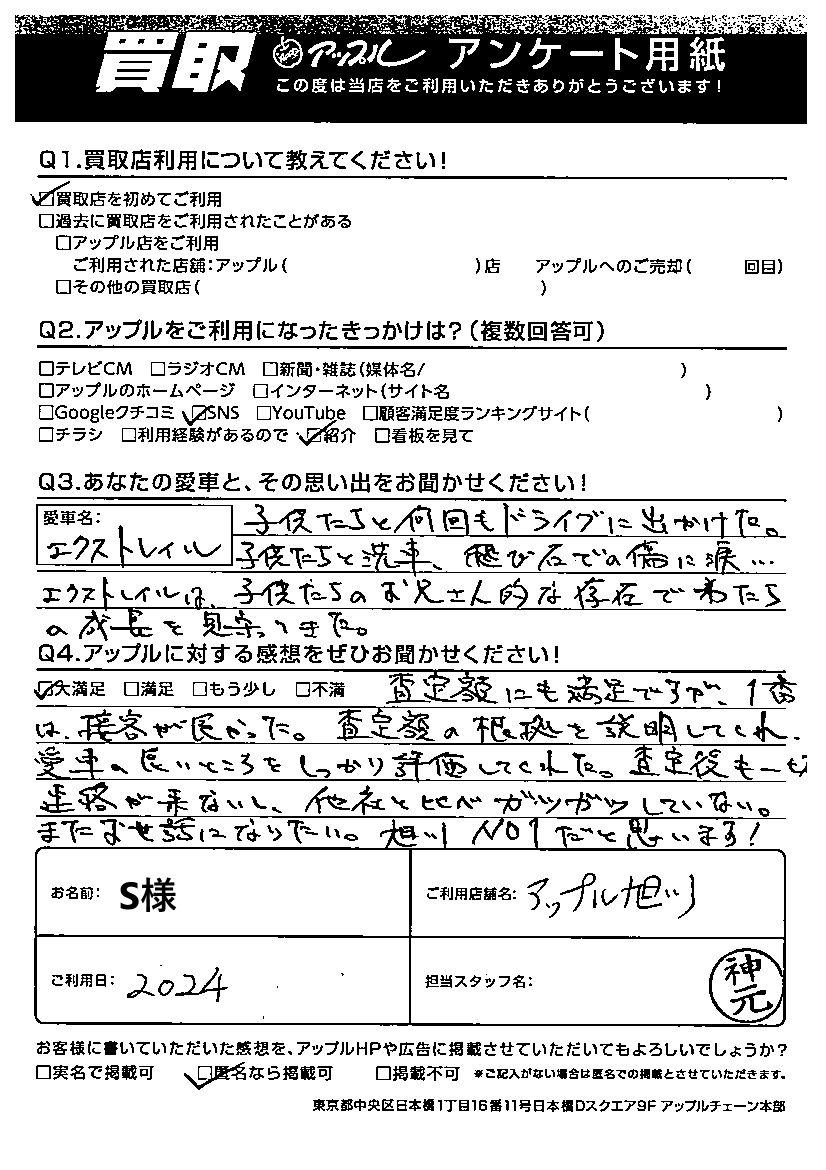 買取 アップル アンケート用紙
この度は当店をご利用いただきありがとうございます!
Q1.買取店利用について教えてください!
☑買取店を初めてご利用
□過去に買取店をご利用されたことがある
□アップル店をご利用
ご利用された店舗:アップル( )店 アップルへのご売却( 回目)
□その他の買取店( )
Q2.アップルをご利用になったきっかけは?(複数回答可)
□テレビCM □ラジオCM □新聞・雑誌(媒体名/ )
□アップルのホームページ □インターネット(サイト名 )
□Googleクチコミ ☑SNS □YouTube □顧客満足度ランキングサイト( )
□チラシ □利用経験があるので ☑紹介 □看板を見て
Q3.あなたの愛車と、その思い出をお聞かせください!
愛車名: エクストレイル
子供たちと何回もドライブに出かけた。
子供たちと洗車、飛び石での傷に涙…
エクストレイルは、子供たちのお兄さん的な存在でわたち
の成長を見守ってきた。
Q4.アップルに対する感想をぜひお聞かせください!
☑大満足 □満足 □もう少し □不満 査定額にも満足ですが、1番
は、接客が良かった。査定額の根拠を説明してくれ、
愛車の良いところをしっかり評価してくれた。査定後も一切
連絡が来ないし、他社と比べガツガツしていない。
またお世話になりたい。旭川NO1だと思います!
お名前: S様 ご利用店舗名: アップル旭川
ご利用日: 2024 担当スタッフ名: 神元
お客様に書いていただいた感想を、アップルHPや広告に掲載させていただいてもよろしいでしょうか?
□実名で掲載可 ☑匿名なら掲載可 □掲載不可 ※ご記入がない場合は匿名での掲載とさせていただきます。
東京都中央区日本橋1丁目16番11号日本橋Dスクエア9F アップルチェーン本部